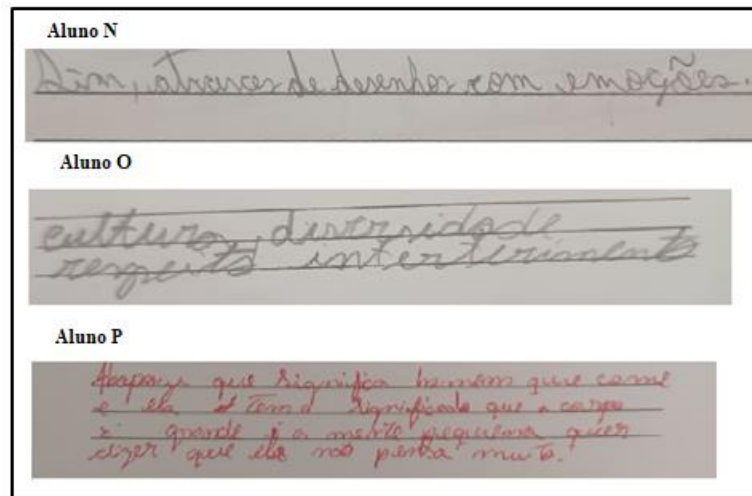 Aluno N
Sim, atraves de desenhos com emoções.
Aluno O
cultura, diversidade
respeito interterimento
Aluno P
Abapuru que significa homem que come
e ela tem o significado que o corpo
e grande i a mente pequena quer
dizer que ele não pensa muito.